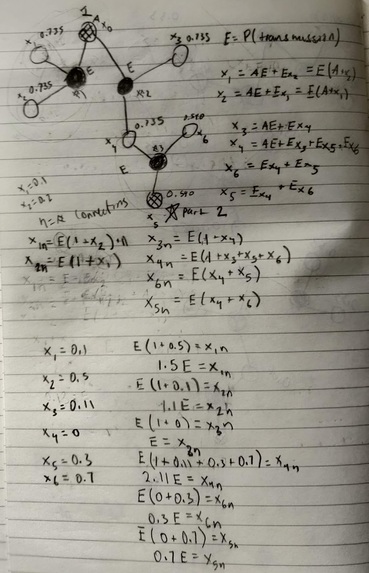 1
A x₀
0.735
x₁
E
R1
0.735
x₂
x₃ 0.735
E
R2
0.735
x₄
0.510
x₆
E R3
0.510
x₅ ☆ part 2
E = P(transmission)
x₁ = AE + Ex₂ = E(A+x₂)
x₂ = AE + Ex₁ = E(A+x₁)
x₃ = AE + Ex₄
x₄ = AE + Ex₃ + Ex₅ + Ex₆
x₆ = Ex₄ + Ex₅
x₅ = Ex₄ + Ex₆
x₁ = 0.1
x₂ = 0.2
n = # connections
x₁ₙ = E(1+x₂)·n
x₂ₙ = E(1+x₁)
x₃ₙ = E(1+x₄)
x₄ₙ = E(1+x₃+x₅+x₆)
x₆ₙ = E(x₄+x₅)
x₅ₙ = E(x₄+x₆)
x₁ = 0.1
x₂ = 0.5
x₃ = 0.11
x₄ = 0
x₅ = 0.3
x₆ = 0.7
E(1+0.5) = x₁ₙ
1.5E = x₁ₙ
E(1+0.1) = x₂ₙ
1.1E = x₂ₙ
E(1+0) = x₃ₙ
E = x₃ₙ
E(1+0.11+0.3+0.7) = x₄ₙ
2.11E = x₄ₙ
E(0+0.3) = x₆ₙ
0.3E = x₆ₙ
E(0+0.7) = x₅ₙ
0.7E = x₅ₙ